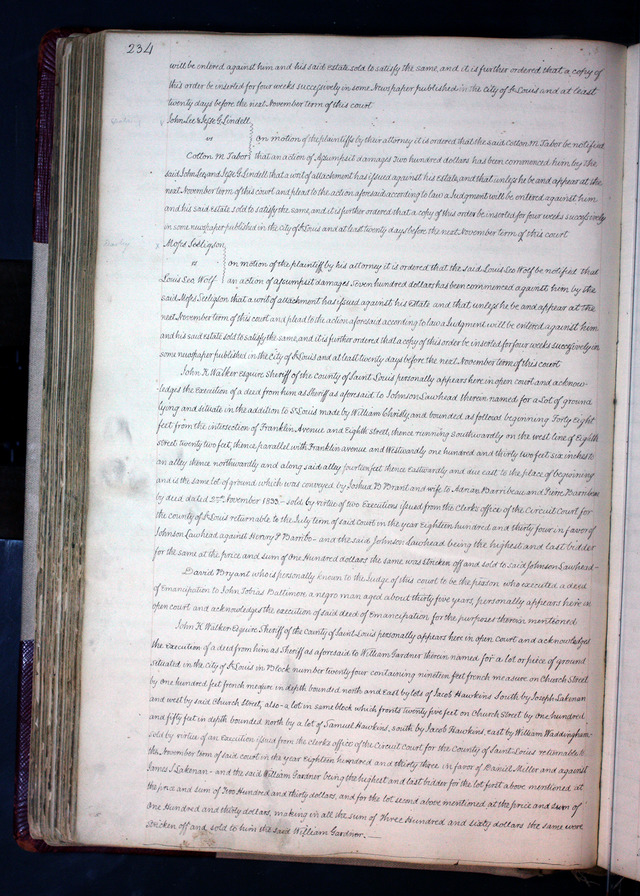 234
will be entered against him and his said estate sold to satisfy the same, and it is further ordered that a copy of
this order be inserted for four weeks successively in some Newspaper published in the city of St Louis and at least
twenty days before the next November term of this court
John Lee & Jesse G Lindell
vs
on motion of the plaintiffs by their attorney it is ordered that the said Cotton M. Tabor be notified
Cotton M. Tabor that an action of Assumpsit damages Two hundred dollars has been commenced him by the
said John Lee and Jesse G Lindell that a writ of attachment has issued against his estate, and that unless he be and appear at the
next November term of this court and plead to the action aforesaid according to law a Judgment will be entered against him
and his said Estate sold to satisfy the same, and it is further ordered that a copy of this order be inserted for four weeks successively
in some newspaper published in the city of St Louis and at least twenty days before the next November term of this court
Moses Seeligson
vs
on motion of the plaintiff by his attorney it is ordered that the said Louis Geo Wolf be notified that
Louis Geo. Wolf an action of assumpsit damages seven hundred dollars has been commenced against him by the
said Moses Seeligson that a writ of attachment has issued against his Estate and that unless he be and appear at the
next November term of this court and plead to the action aforesaid according to law a Judgment will be entered against him
and his said estate sold to satisfy the same, and it is further ordered that a copy of this order be inserted for four weeks successively in
some newspaper published in the city of St Louis and at least twenty days before the next November term of this court
John K. Walker Esquire Sheriff of the county of Saint Louis personally appears here in open court and acknow-
-ledges the Execution of a deed from him as Sheriff as aforesaid to Johnson Lawhead therein named for a Lot of ground
lying and situate in the addition to St Louis made by William Christy and bounded as follows beginning Forty Eight
feet from the intersection of Franklin Avenue and Eighth street, thence running southwardly on the west line of Eighth
street twenty two feet, thence parallel with Franklin avenue and Westwardly one hundred and thirty two feet six inches to
an alley thence northwardly and along said alley fourteen feet thence Eastwardly and due east to the place of beginning
and is the same lot of ground which was conveyed by Joshua B Brant and wife to Adrian Barribeau and Pierre Barribeau
by deed dated November 1833 - sold by virtue of two Executions issued from the clerks office of the Circuit Court for
the county of St Louis returnable to the July term of said court in the year Eighteen hundred and thirty four in favor of
Johnson Lawhead against Henry P Barribo - and the said Johnson Lawhead being the highest and last bidder
for the same at the price and sum of One Hundred dollars the same was stricken off and sold to said Johnson Lawhead -
David Bryant who is personally known to the Judge of this court to be the person who executed a deed
of Emancipation to John Tobias Baltimore a negro man aged about thirty five years, personally appears here in
open court and acknowledges the execution of said deed of Emancipation for the purposes therein mentioned
John K. Walker Esquire Sheriff of the county of Saint Louis personally appears here in open court and acknowledges
the Execution of a deed from him as Sheriff as aforesaid to William Gardner therein named for a lot or piece of ground
situated in the city of St Louis in Block number twenty four containing nineteen feet french measure on Church Street
by one hundred feet french measure in depth bounded north and east by lots of Jacob Hawkins South by Joseph Lakenan
and west by said Church Street, also a lot in same block which fronts twenty five feet on Church Street by one hundred
and fifty feet in depth bounded north by a lot of Samuel Hawkins, south by Jacob Hawkins, east by William Waddingham -
sold by virtue of an Execution issued from the clerks office of the Circuit Court for the County of Saint Louis returnable to
the November term of said court in the year Eighteen hundred and thirty three in favor of Daniel Miller and against
James S Lakenan - and the said William Gardner being the highest and last bidder for the lot first above mentioned at
the price and sum of Two Hundred and thirty dollars, and for the lot second above mentioned at the price and sum of
One Hundred and thirty dollars, making in all the sum of Three Hundred and sixty dollars the same were
stricken off and sold to him the said William Gardner.